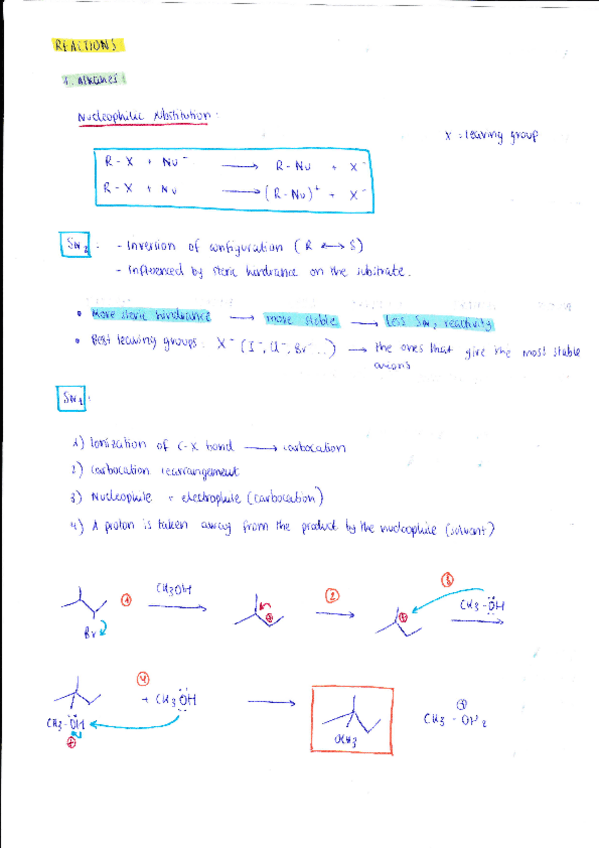 REACTIONS
1. Alkanes:
Nucleophilic substitution:
X = leaving group
R - X + Nu⁻ ⟶ R - Nu + X⁻
R - X + Nu ⟶ (R - Nu)⁺ + X⁻
SN₂: - Inversion of configuration (R ⟷ S)
- Influenced by steric hindrance on the substrate.
• More steric hindrance ⟶ more stable ⟶ Less SN₂ reactivity
• Best leaving groups: X⁻ (I⁻, Cl⁻, Br⁻...) ⟶ the ones that give the most stable
anions
SN₁:
1) Ionization of C-X bond ⟶ carbocation
2) Carbocation rearrangement
3) Nucleophile + electrophile (carbocation)
4) A proton is taken away from the product by the nucleophile (solvent)
① CH₃OH ② ③
Br ⊕ ⊕ CH₃-ÖH
④
+ CH₃ÖH
CH₃-ÖH OCH₃ CH₃ - OH₂
⊕ ⊕